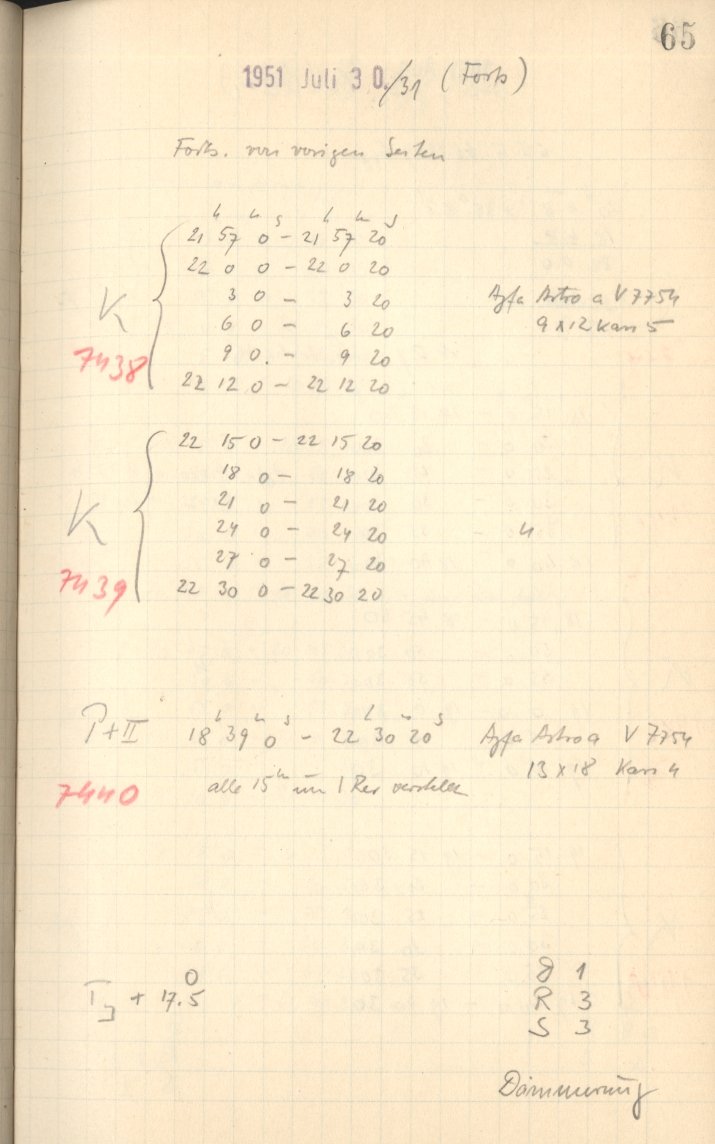 65
1951 Juli 30./31 (Forts)
Forts. von vorigen Seiten
h m s h m s
21 57 0 - 21 57 20
22 0 0 - 22 0 20
K 3 0 - 3 20 Agfa Astro a V 7754
6 0 - 6 20 9 x 12 Kass 5
7438 9 0. - 9 20
22 12 0 - 22 12 20
22 15 0 - 22 15 20
18 0 - 18 20
21 0 - 21 20
K 24 0 - 24 20 4
27 0 - 27 20
7439 22 30 0 - 22 30 20
P+II 18h 39m 0s - 22h 30m 20s Agfa Astro a V 7754
13 x 18 Kass 4
7440 alle 15m um 1 Rev
T + 17.5°
1
R 3
S 3
Dämmerung